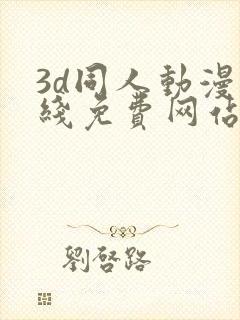 3d同人動漫
綫免費网佔
劉啓路